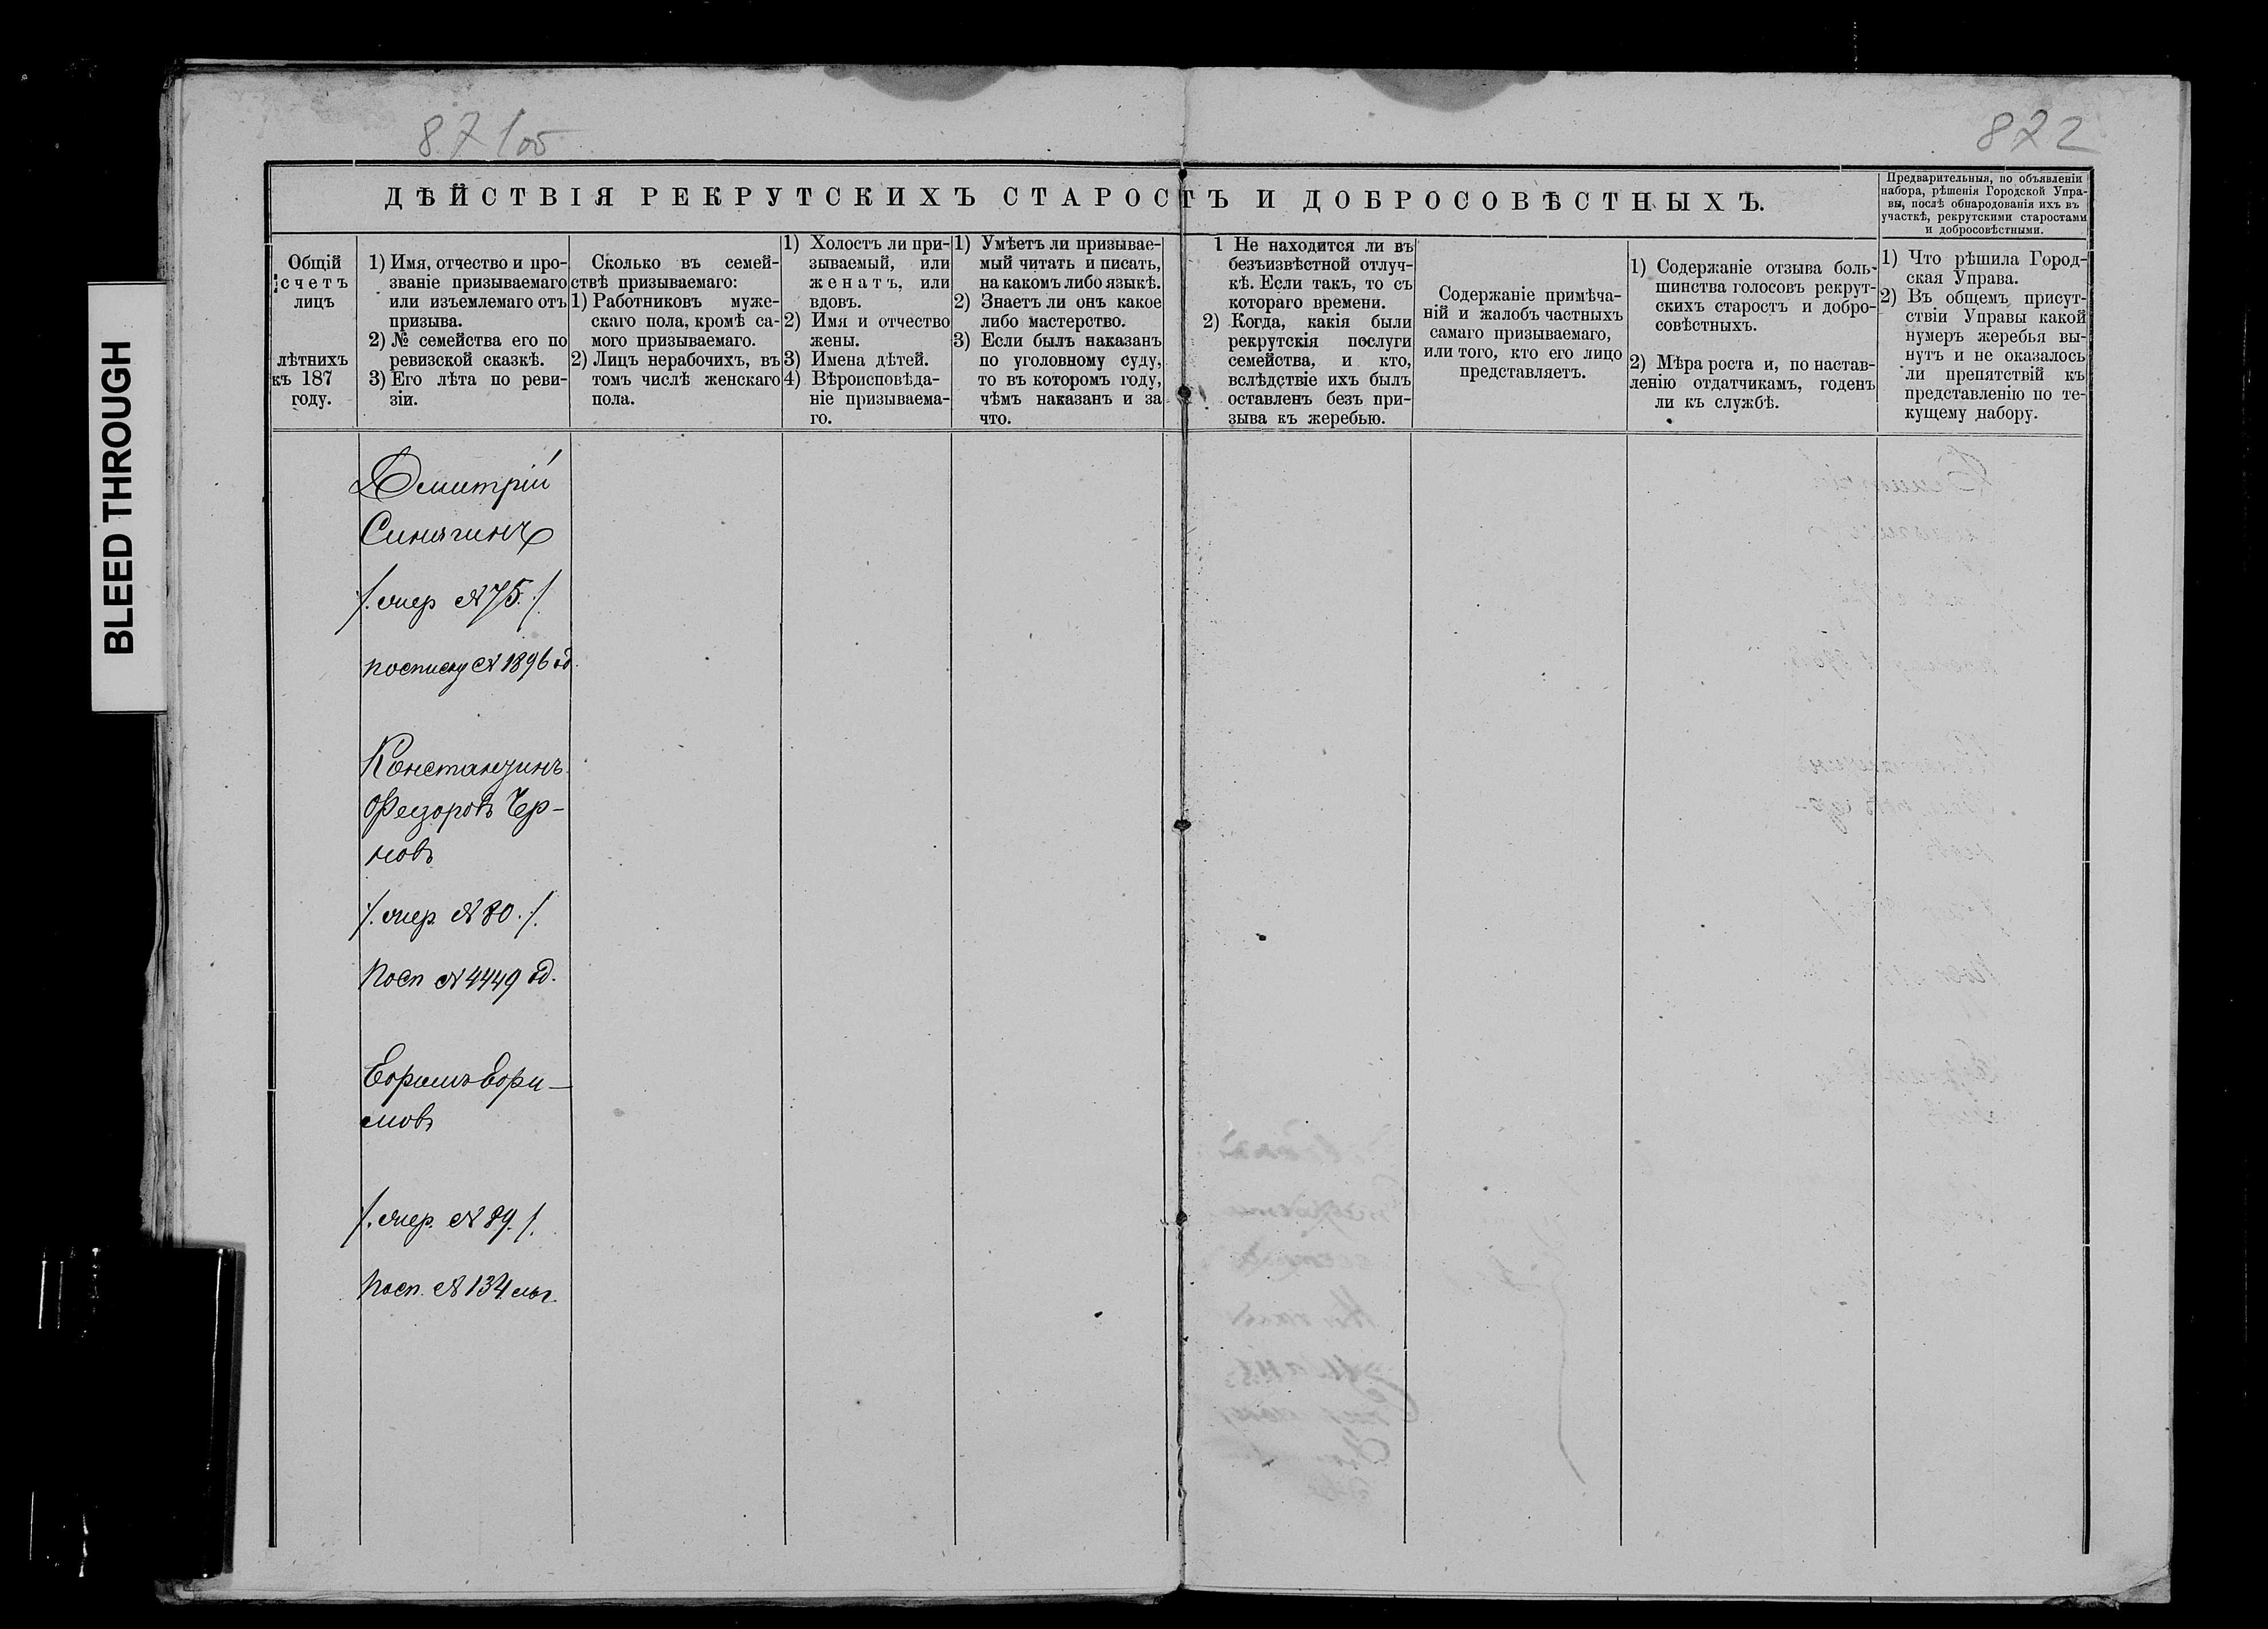 BLEED THROUGH
871об
872
ДѢЙСТВІЯ РЕКРУТСКИХЪ СТАРОСТЪ И ДОБРОСОВѢСТНЫХЪ.
Предварительныя, по объявленіи
набора, рѣшенія Городской Упра-
вы, послѣ обнародованія ихъ въ
участкѣ, рекрутскими старостами
и добросовѣстными.
Общій
счетъ
лицъ
лѣтнихъ
къ 187
году.
1) Имя, отчество и про-
званіе призываемаго
или изъемлемаго отъ
призыва.
2) № семейства его по
ревизской сказкѣ.
3) Его лѣта по реви-
зіи.
Сколько въ семей-
ствѣ призываемаго:
1) Работниковъ муже-
скаго пола, кромѣ са-
мого призываемаго.
2) Лицъ нерабочихъ, въ
томъ числѣ женскаго
пола.
1) Холостъ ли при-
зываемый, или
женатъ, или
вдовъ.
2) Имя и отчество
жены.
3) Имена дѣтей.
4) Вѣроисповѣда-
ніе призываема-
го.
1) Умѣетъ ли призывае-
мый читать и писать,
на какомъ либо языкѣ.
2) Знаетъ ли онъ какое
либо мастерство.
3) Если былъ наказанъ
по уголовному суду,
то въ которомъ году,
чѣмъ наказанъ и за
что.
1 Не находится ли въ
безъизвѣстной отлуч-
кѣ. Если такъ, то съ
котораго времени.
2) Когда, какія были
рекрутскія послуги
семейства, и кто,
вслѣдствіе ихъ былъ
оставленъ безъ при-
зыва къ жеребью.
Содержаніе примѣча-
ній и жалобъ частныхъ
самаго призываемаго,
или того, кто его лицо
представляетъ.
1) Содержаніе отзыва боль-
шинства голосовъ рекрут-
скихъ старостъ и добро-
совѣстныхъ.
2) Мѣра роста и, по настав-
ленію отдатчикамъ, годенъ
ли къ службѣ.
1) Что рѣшила Город-
ская Управа.
2) Въ общемъ присут-
ствіи Управы какой
нумеръ жеребья вы-
нутъ и не оказалось
ли препятствій къ
представленію по те-
кущему набору.
Дмитрій
Синягинъ
/. очер № 75. ./
по списку № 1896 од.
Констанцинъ
Федоровъ Чер-
новъ
/. очер. № 80. /.
Посп № 4449 од.
Ефимъ Ефи-
мовъ
/. очер. № 89. /.
Посп. № 134